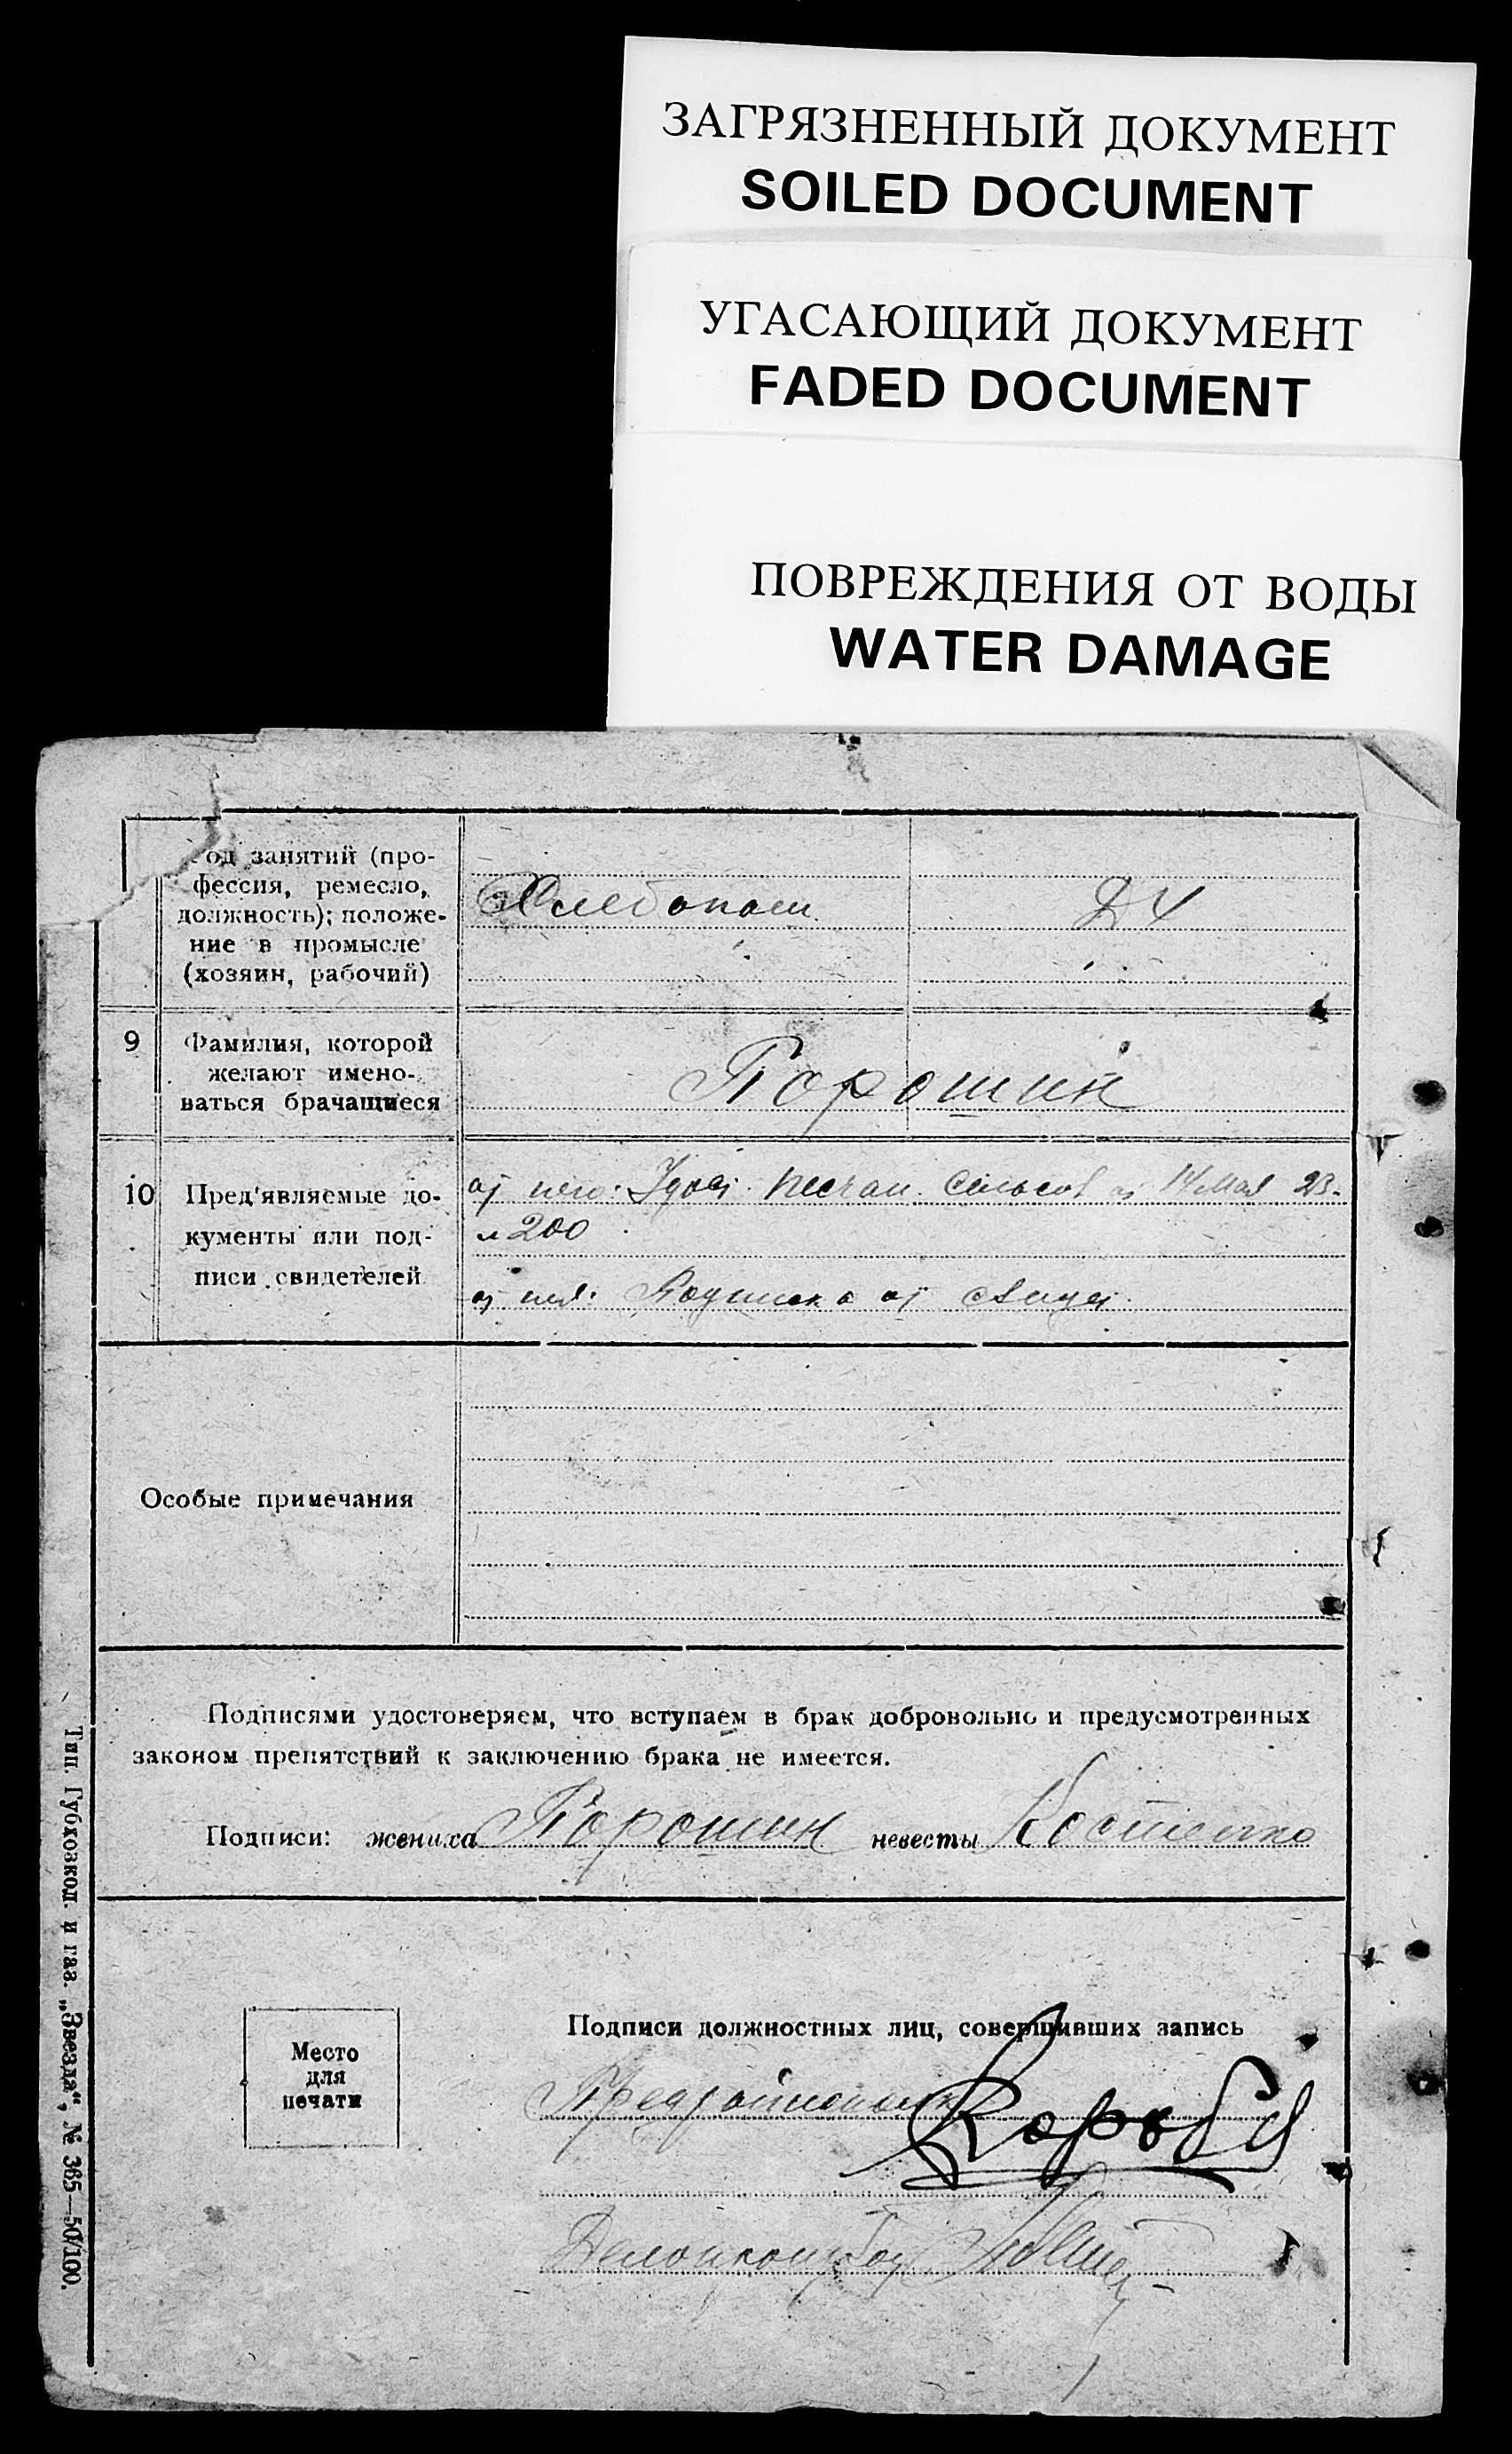 ЗАГРЯЗНЕННЫЙ ДОКУМЕНТ
SOILED DOCUMENT
УГАСАЮЩИЙ ДОКУМЕНТ
FADED DOCUMENT
ПОВРЕЖДЕНИЯ ОТ ВОДЫ
WATER DAMAGE
од занятий (про-
фессия, ремесло,
должность); положе-
ние в промысле
(хозяин, рабочий)
Хлебопаш.
9
Фамилия, которой
желают имено-
ваться брачащиеся
Порошин
10
Пред'являемые до-
кументы или под-
писи свидетелей
от него: Удост. Песчан. Сельсов от 14 Мая 23.
200
от нея: Подписка от
Особые примечания
Подписями удостоверяем, что вступаем в брак добровольно и предусмотренных
законом препятствий к заключению брака не имеется.
Подписи: жениха Порошин невесты Костенко
Место
для
печати
Подписи должностных лиц, совершивших запись
Предрайисполк
Делопроизвод
Тип. Губкозкол. и газ. „Звезда“, № 365—50/100.